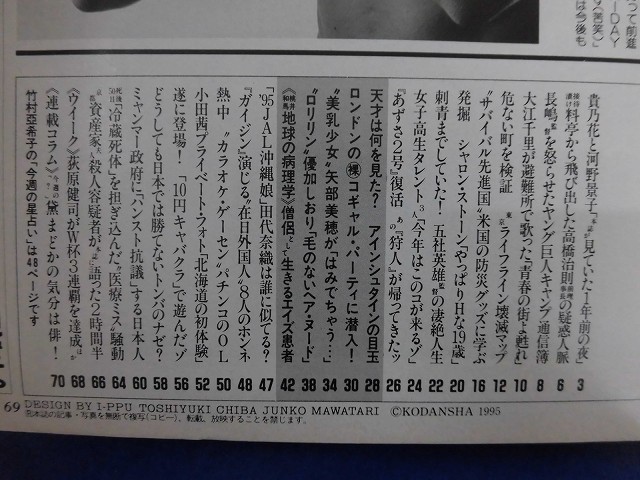 って前進
DAY
（苦笑）」
は今後も
貴乃花と河野景子「本誌は見ていた！年前の夜」 3
接待漬け 料亭から飛び出した高橋治則の疑惑人脈 6
長嶋監督を怒らせたヤング巨人キャンプ通信簿 8
大江千里が避難所で歌った「青春の街よ甦れ」 10
危ない町を検証 東京ライフライン壊滅マップ 12
“サバイバル先進国”米国の防災グッズに学ぶ 16
発掘 シャロン・ストーン「やっぱりHな19歳」 20
刺青までしていた！ 五社英雄監督の凄絶人生 22
女子高生タレント3人「今年はこのコが来るゾ」 24
『あずさ2号』復活 あの「狩人」が帰ってきたッ 26
天才は何を見た？ アインシュタインの目玉 28
ロンドンの㊙コギャル・パーティに潜入！ 30
“美乳少女”矢部美穂が「はみでちゃう…」 34
“ロリリン”優加しおり「毛のないヘア・ヌード」 38
《桃井和馬》地球の病理学 僧侶として生きるエイズ患者 42
「'95JAL沖縄娘」田代奈織は誰に似てる？ 47
『ガイジン』演じる“在日外国人”8人のホンネ 48
熱中 “カラオケ・ゲーセン”パチンコのOL 50
小田茜プライベート・フォト「北海道の初体験」 52
遂に登場！ 「10円キャバクラ」で遊んだゾ 56
どうしても日本では勝てないトンバのナゼ？ 58
ミャンマー政府に「ハンスト抗議」する日本人 60
死後50日目「冷蔵死体」を担ぎ込んだ“医療ミス”騒動 64
京都 資産家夫人殺人容疑者が本誌に語った2時間半 66
《ウイーク》荻原健司がW杯3連覇を達成ほか 68
《連載コラム》今週の黛まどかの気分は俳！ 70
竹村亞希子の「今週の星占い」は48ページです
69 DESIGN BY I-PPU TOSHIYUKI CHIBA JUNKO MAWATARI ©KODANSHA 1995
無本誌の記事・写真を無断で複写（コピー）、転載、放映することを禁じます。